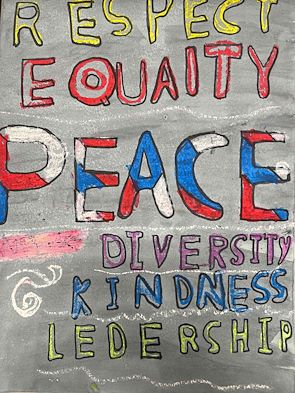 RESPECT
EQUAITY
PEACE
DIVERSITY
KINDNESS
LEDERSHIP